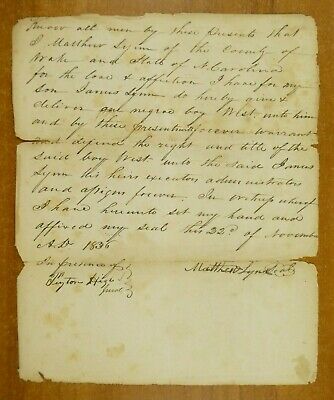 Know all men by these Presents that
I Matthew Lynn of the County of
Wake and State of N. Carolina
for the love & affection I have for my
son James Lynn do hereby give &
deliver one negroe boy West unto him
and by these presents forever warrant
and defend the right and title of the
said boy West unto the said James
Lynn his heirs executors administrators
and assigns forever. In witness whereof
I have hereunto set my hand and
affixed my seal this 22d of November
A.D. 1836
In presence of
Matthew Lynn Seal
High
Jurat